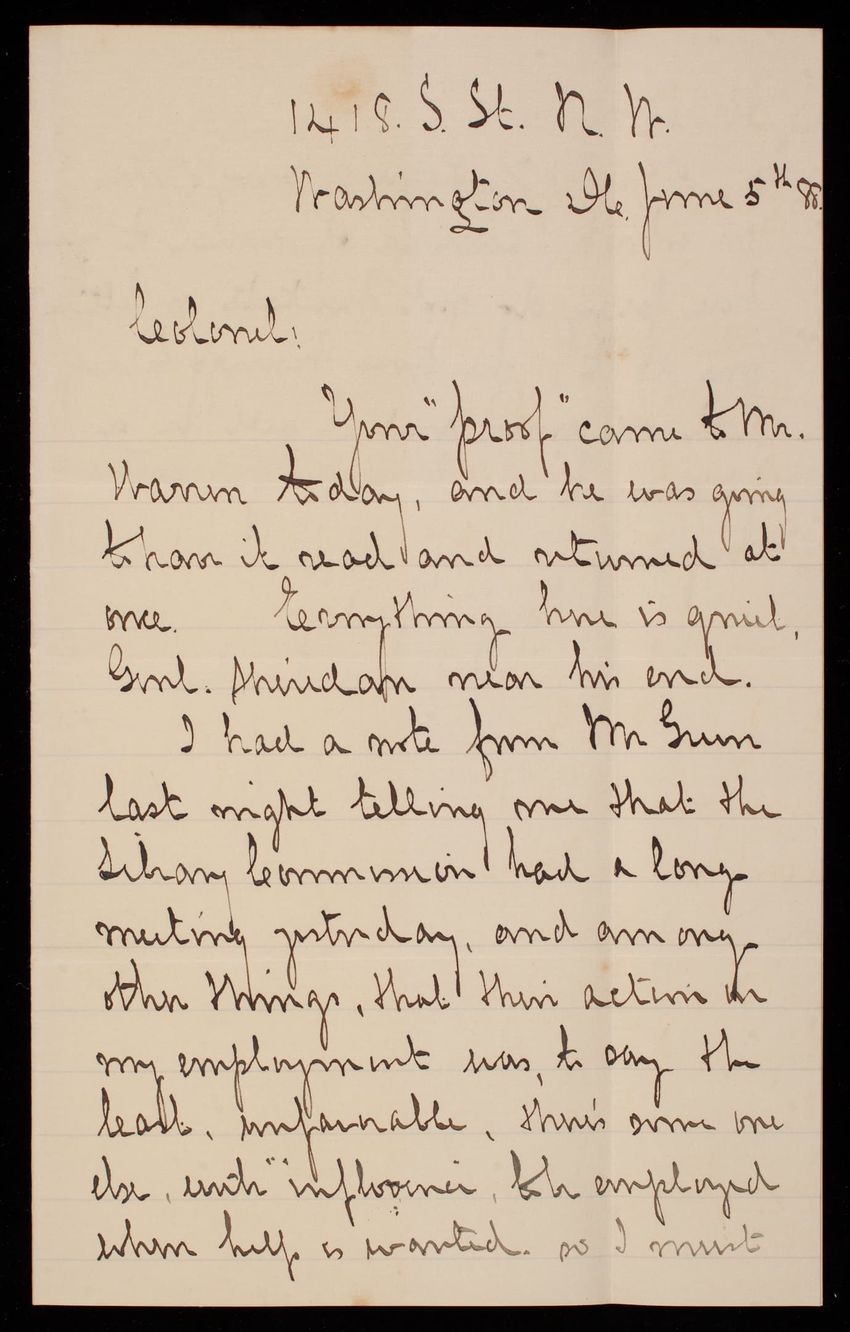 1418. S. St. N. W.
Washington DC. June 5th 88.
Colonel:
Your "proof" came to Mr.
Warren today, and he was going
to have it read and returned at
once. Everything here is quiet,
Genl. Sheridan near his end.
I had a note from Mr Green
last night telling me that the
Library Commission had a long
meeting yesterday, and among
other things, that their action in
my employment was, to say the
least, unfavorable, there's some one
else, with "influence, to be employed
when help is wanted. so I must